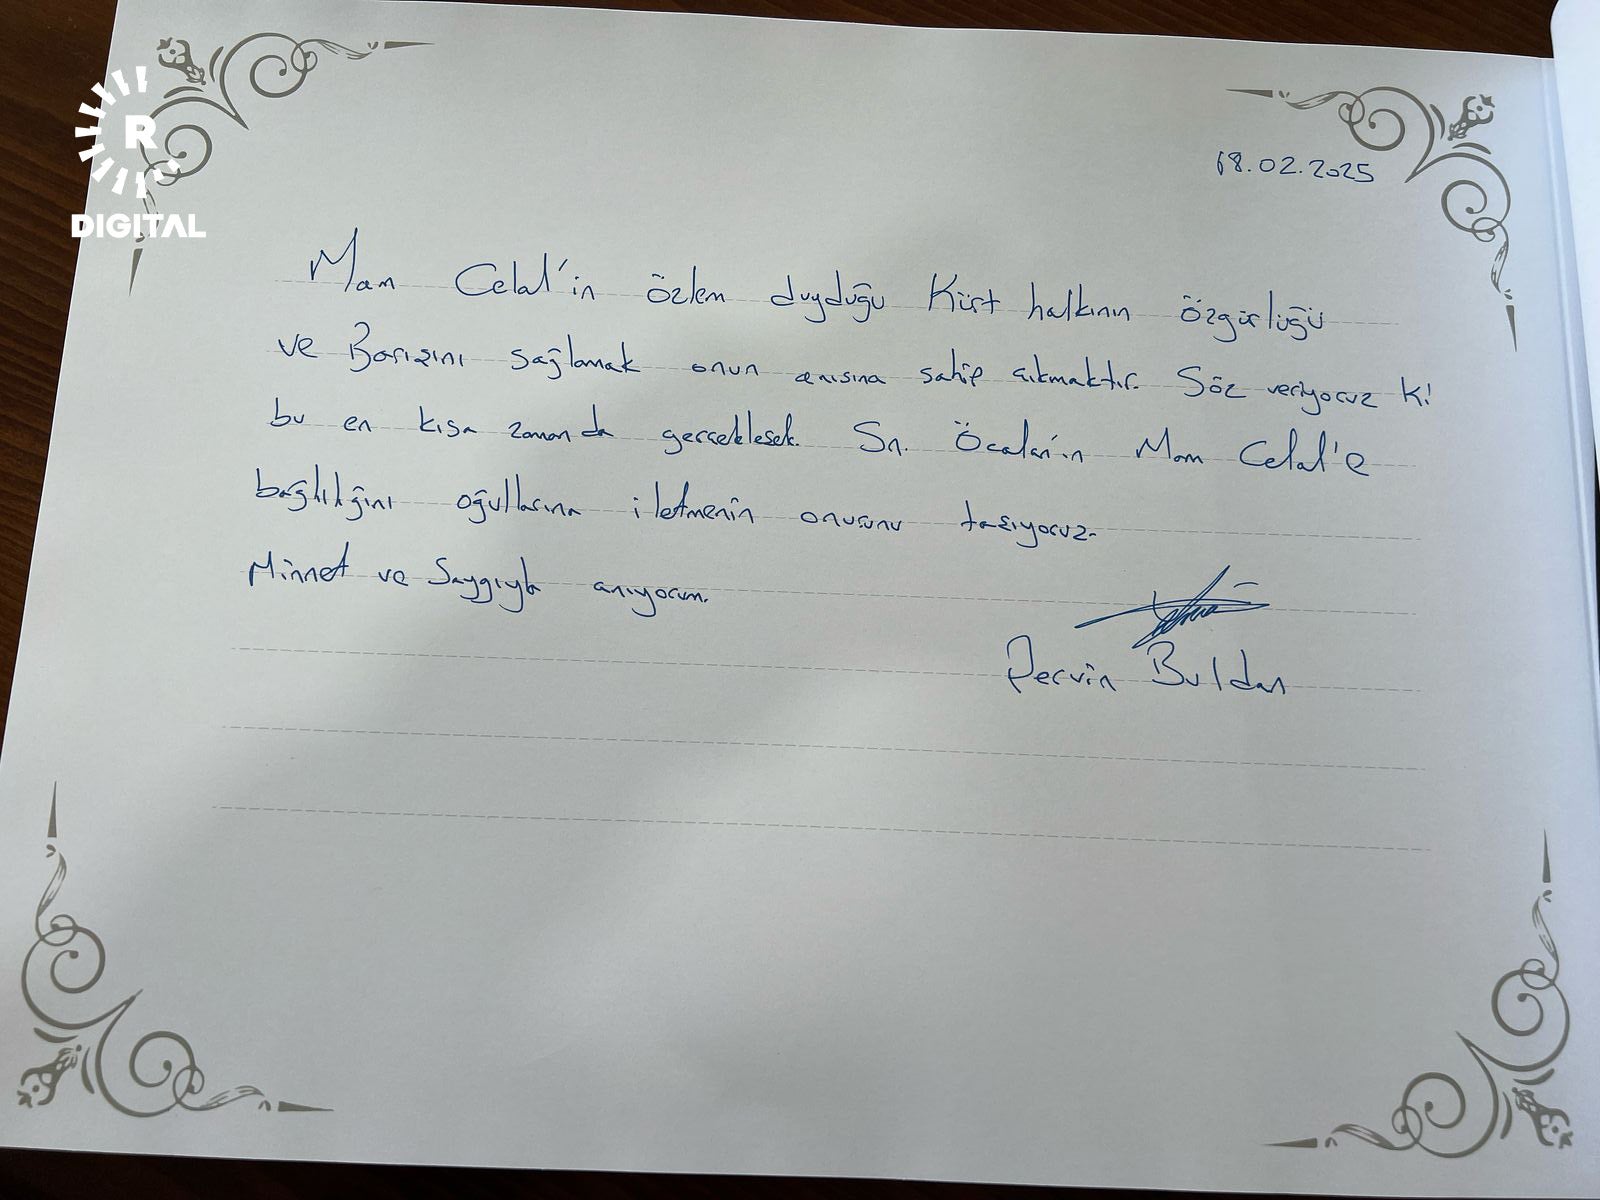 R
DIGITAL
18.02.2025
Mam Celal'in özlem duyduğu Kürt halkının özgürlüğü
ve Barışını sağlamak onun anısına sahip çıkmaktır. Söz veriyoruz ki
bu en kısa zamanda gerçekleşek. Sn. Öcalan'ın Mam Celal'e
bağlılığını oğullarına iletmenin onurunu taşıyoruz.
Minnet ve Saygıyla anıyorum.
Pervin Buldan